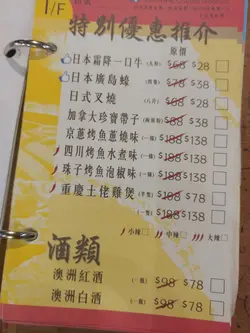 1/F
特別優惠推介
原價
日本霜降一口牛 (九粒) $68 $28
日本廣島蠔 (四隻) $78 $38
日式叉燒 (八件) $68 $28
加拿大珍寶帶子 $188 $138
京蔥烤魚蔥燒味 (一條) $188 $138
四川烤魚水煮味 (一條) $188 $138
珠子烤魚泡椒味 (一條) $188 $138
重慶土佬雞煲 (半隻) $188 $138
(一隻) $188 $138
小辣 中辣 大辣
酒類
澳洲紅酒 (一瓶) $98 $78
澳洲白酒 (一瓶) $98 $78